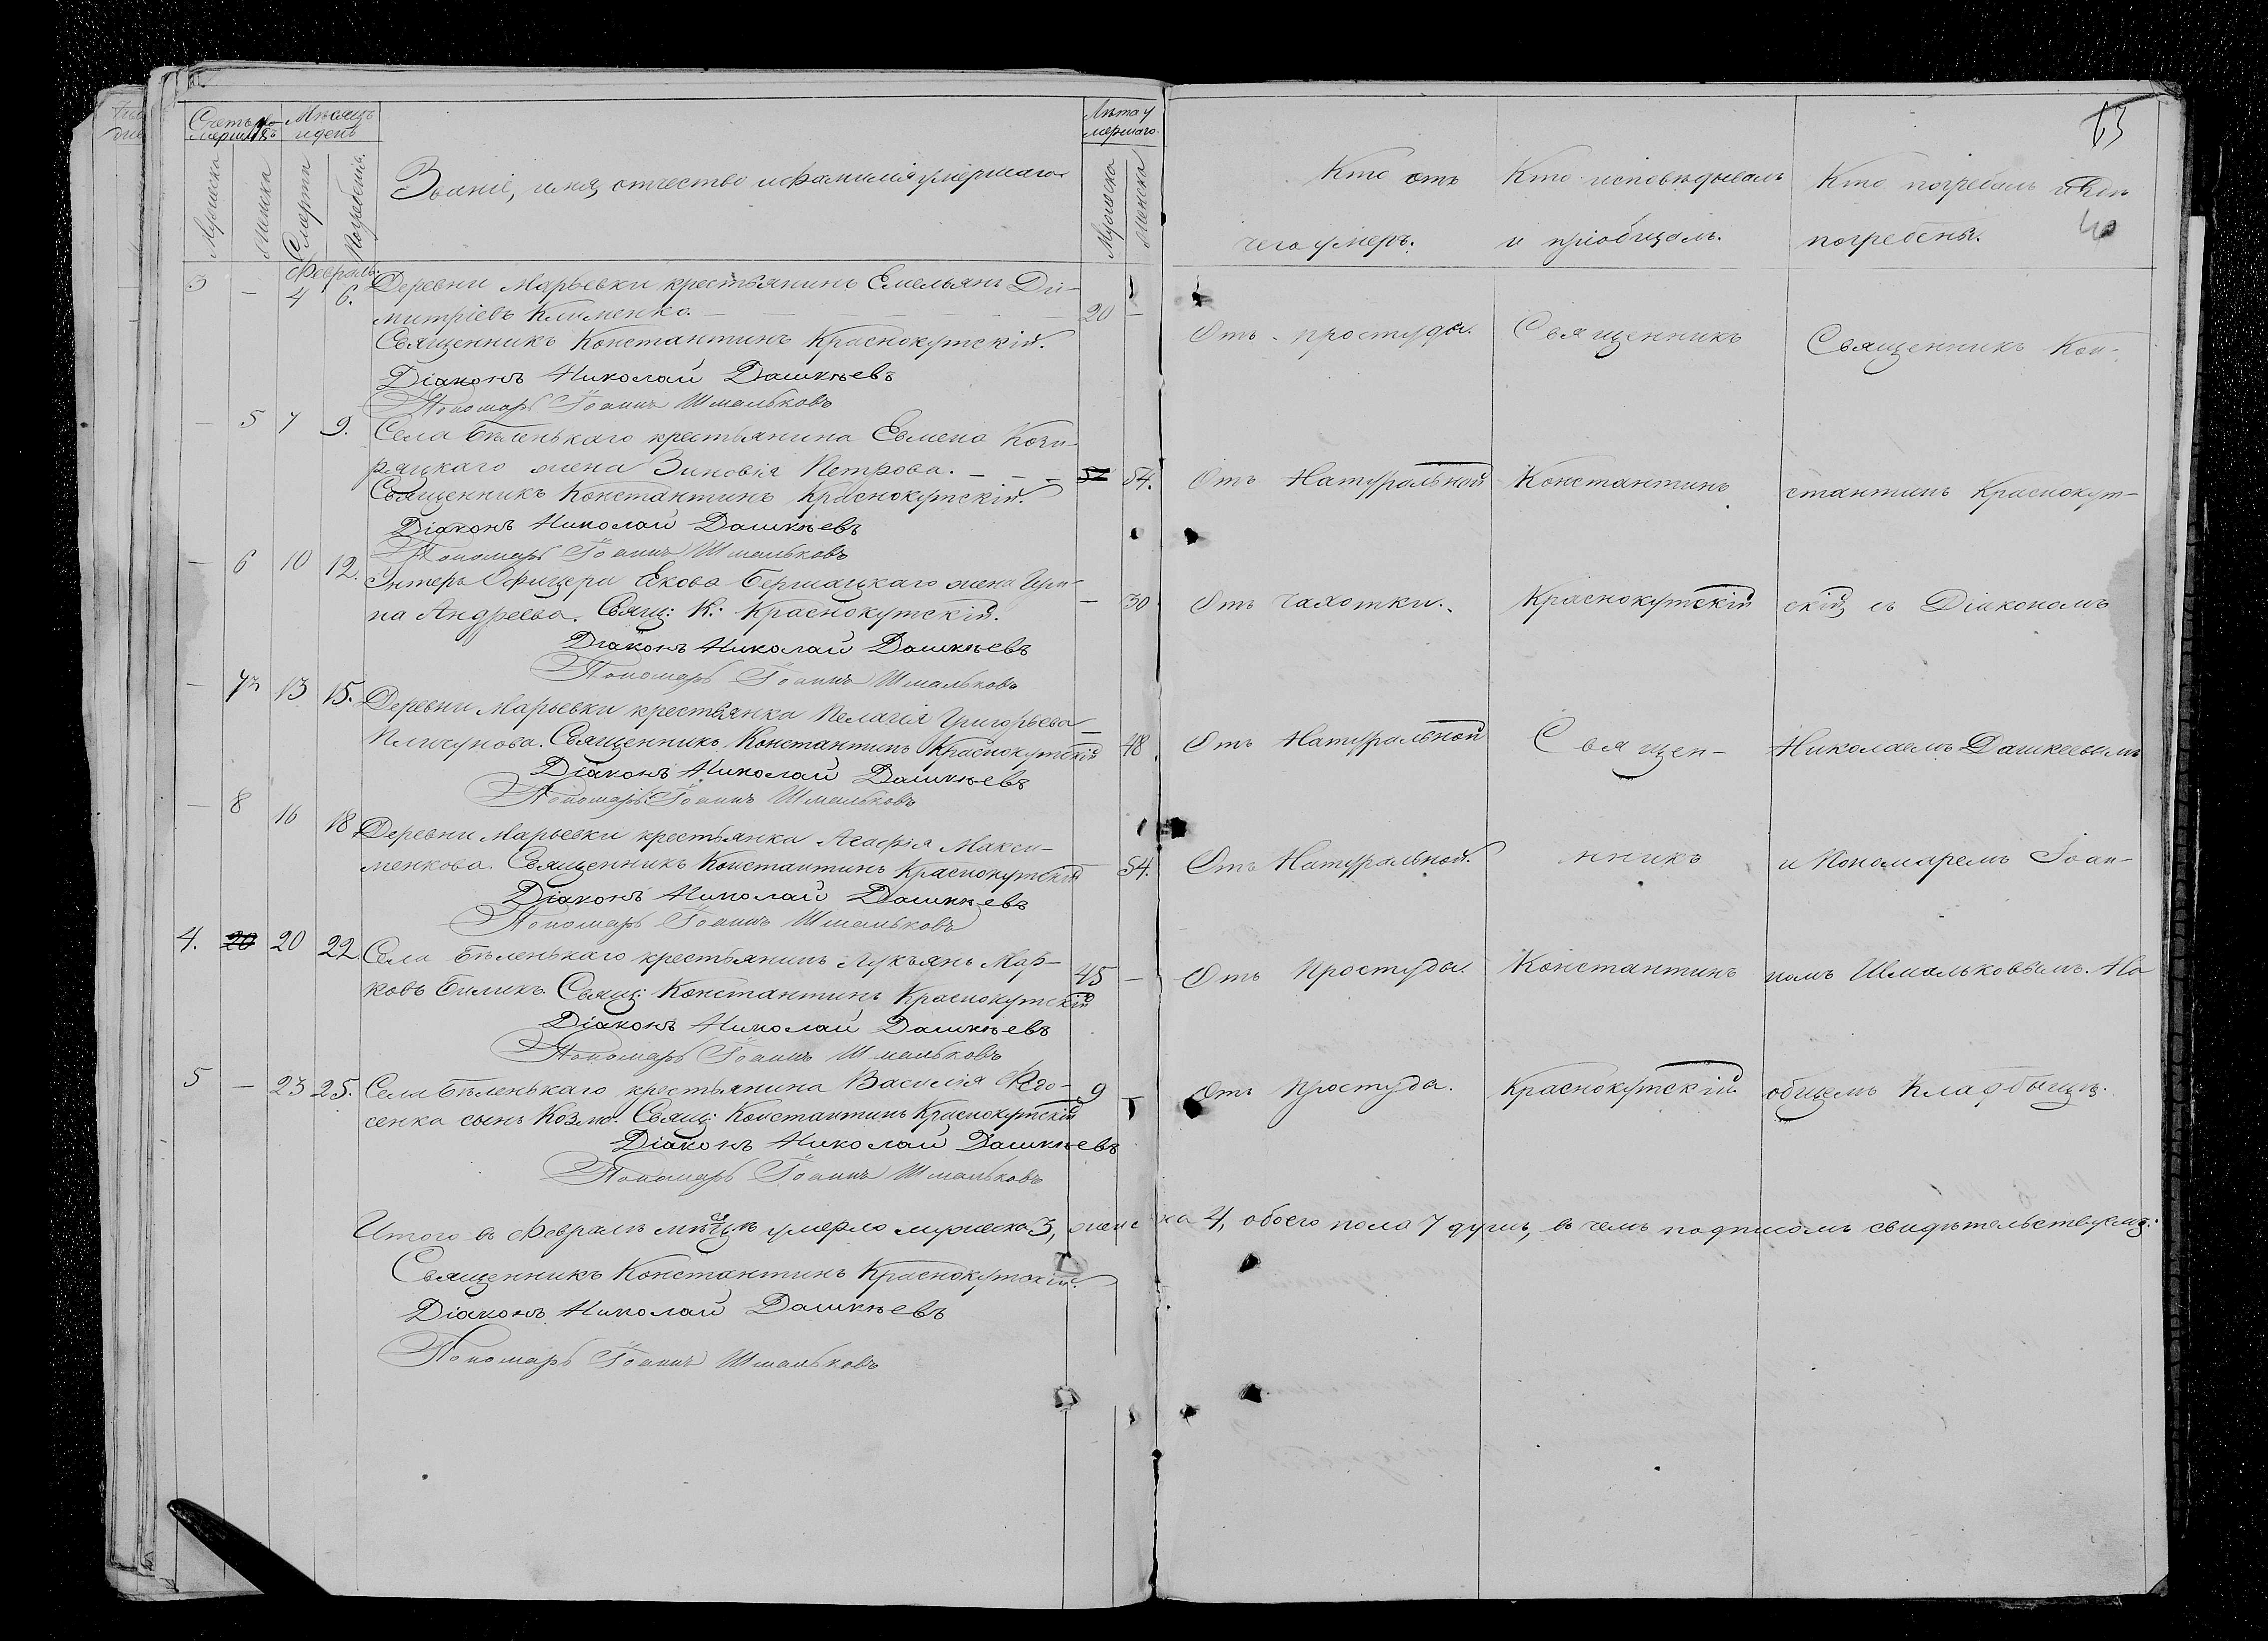 Счетъ умершихъ
Мѣсяцъ и день
Мужеска
Женска
Смерти
Погребенія.
Званіе, имя, отчество и фамилія умершаго
Лѣта умершаго.
Мужеска
Женска
Кто отъ чего умеръ.
Кто исповѣдывалъ и пріобщалъ.
Кто погребалъ и гдѣ погребены.
63
Февраль
3 — 4 6. Деревни Марьевки крестьянинъ Емельянъ Ди-
митріевъ Клименко. — 20 — Отъ простуды. Священникъ Священникъ Кон-
Священникъ Константинъ Краснокутскій.
Діаконъ Николай Дашкѣевъ
Пономарь Іоаннъ Шмальковъ
— 5 7 9. Села Бѣленькаго крестьянина Евмена Кози-
ряцкаго жена Зиновія Петрова. — 54. Отъ Натуральной Константинъ стантинъ Краснокут-
Священникъ Константинъ Краснокутскій.
Діаконъ Николай Дашкѣевъ
Пономарь Іоаннъ Шмальковъ
— 6 10 12. Унтеръ Офицера Якова жена Ири-
на Андреева. Свящ: К: Краснокутскій. — 30 Отъ чахотки. Краснокутскій скій, съ Діакономъ
Діаконъ Николай Дашкѣевъ
Пономарь Іоаннъ Шмальковъ
— 7 13 15. Деревни Марьевки крестьянка Пелагія Григорьева
Священникъ Константинъ Краснокутскій — 48. Отъ Натуральной Священ- Николаемъ Дашкеевымъ
Діаконъ Николай Дашкѣевъ
Пономарь Іоаннъ Шмальковъ
— 8 16 18 Деревни Марьевки крестьянка Агафія Макси-
менкова. Священникъ Константинъ Краснокутскій — 54. Отъ Натуральной. никъ и Пономаремъ Іоан-
Діаконъ Николай Дашкѣевъ
Пономарь Іоаннъ Шмальковъ
4. 20 20 22. Села Бѣленькаго крестьянинъ Лукьянъ Мар-
ковъ Биликъ. Свящ: Константинъ Краснокутскій 45 — Отъ Простуды. Константинъ номъ Шмальковымъ. На
Діаконъ Николай Дашкѣевъ
Пономарь Іоаннъ Шмальковъ
5 — 23 25. Села Бѣленькаго крестьянина Василія
сенка сынъ Козма. Свящ: Константинъ Краснокутскій 9 Отъ Простуды. Краснокутскій общемъ Кладбищѣ.
Діаконъ Николай Дашкѣевъ
Пономарь Іоаннъ Шмальковъ
Итого въ Февралѣ мѣсяцѣ умерло мужеска 3, женска 4, обоего пола 7 душъ, въ чемъ подписомъ свидѣтельствуемъ:
Священникъ Константинъ Краснокутскій.
Діаконъ Николай Дашкѣевъ
Пономарь Іоаннъ Шмальковъ